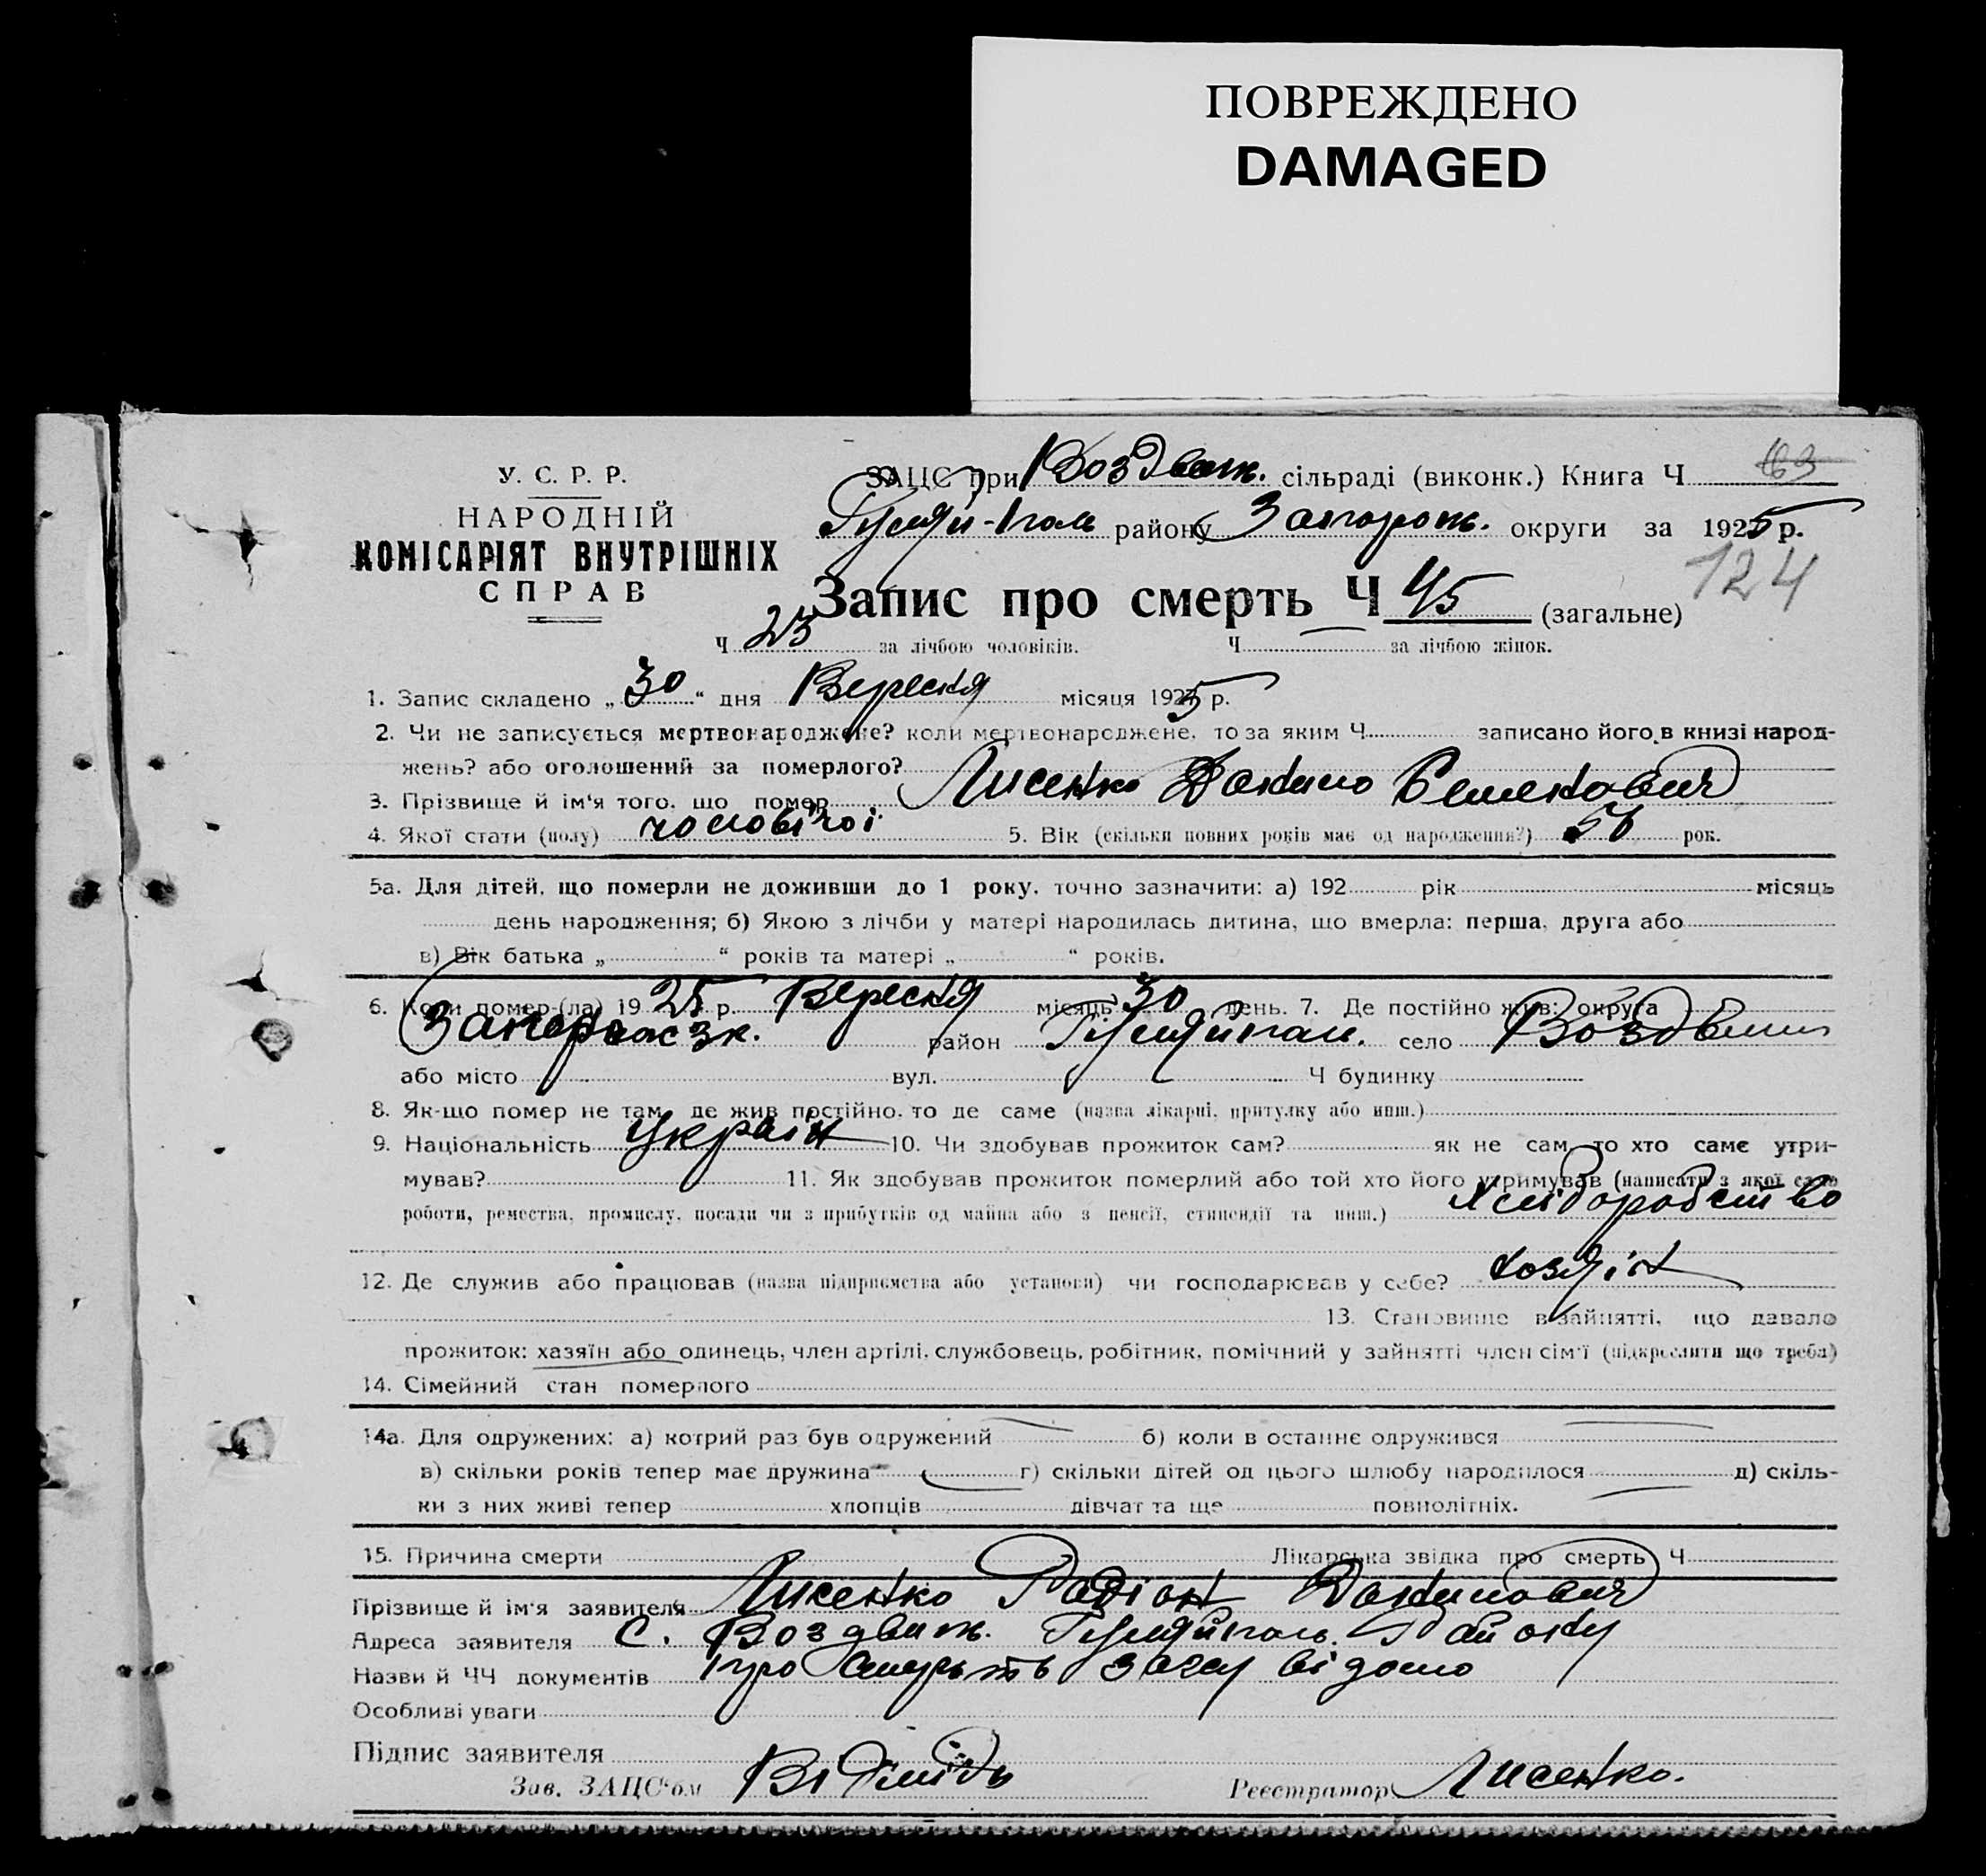 ПОВРЕЖДЕНО
DAMAGED
У. С. Р. Р.
НАРОДНІЙ
КОМІСАРІЯТ ВНУТРІШНІХ
СПРАВ
ЗАЦС при Воздвиж. сільраді (виконк.) Книга Ч 63
Гуляй-Поль району Запорож. округи за 1925 р.
124
Запис про смерть Ч 45 (загальне)
Ч 23 за лічбою чоловіків. Ч за лічбою жінок.
1. Запис складено „ 30 “ дня Вересня місяця 1925 р.
2. Чи не записується мертвонароджене? коли мертвонароджене, то за яким Ч записано його в книзі народ-
жень? або оголошений за померлого?
3. Прізвище й ім'я того, що помер Лисенко Данило Семенович
4. Якої стати (полу) чоловічої 5. Вік (скільки повних років має од народження?) 56 рок.
5а. Для дітей, що померли не доживши до 1 року, точно зазначити: а) 192 рік місяць
день народження; б) Якою з лічби у матері народилась дитина, що вмерла: перша, друга або
в) Вік батька „ “ років та матері „ “ років.
6. Коли помер-(ла) 1925 р. Вересня місяць 30 день. 7. Де постійно жив: округа
Запорожзк. район Гуляйпаль. село Воздвиж
або місто вул. Ч будинку
8. Як-що помер не там, де жив постійно, то де саме (назва лікарні, притулку або инш.)
9. Національність Україн 10. Чи здобував прожиток сам? як не сам, то хто саме утри-
мував? 11. Як здобував прожиток померлий або той хто його утримував (написати з якої саме
роботи, ремества, промислу, посади чи з прибутків од майна або з пенсії, стипендії та инш.) Хліборобство
12. Де служив або працював (назва підприємства або установи) чи господарював у себе? хозяін
13. Становище в зайнятті, що давало
прожиток: хазяїн або одинець, член артілі, службовець, робітник, помічний у зайнятті член сім'ї (підкреслити що треба)
14. Сімейний стан померлого
14а. Для одружених: а) котрий раз був одружений б) коли в останнє одружився
в) скільки років тепер має дружина г) скільки дітей од цього шлюбу народилося д) скіль-
ки з них живі тепер хлопців дівчат та ще повнолітніх.
15. Причина смерти Лікарська звідка про смерть Ч
Прізвище й ім'я заявителя Лисенко Радіон Данилович
Адреса заявителя С. Воздвиж. Гуляйполь. Району
Назви й ЧЧ документів про смерть загсу відомо
Особливі уваги
Підпис заявителя
Зав. ЗАЦС'ом Реєстратор Лисенко.